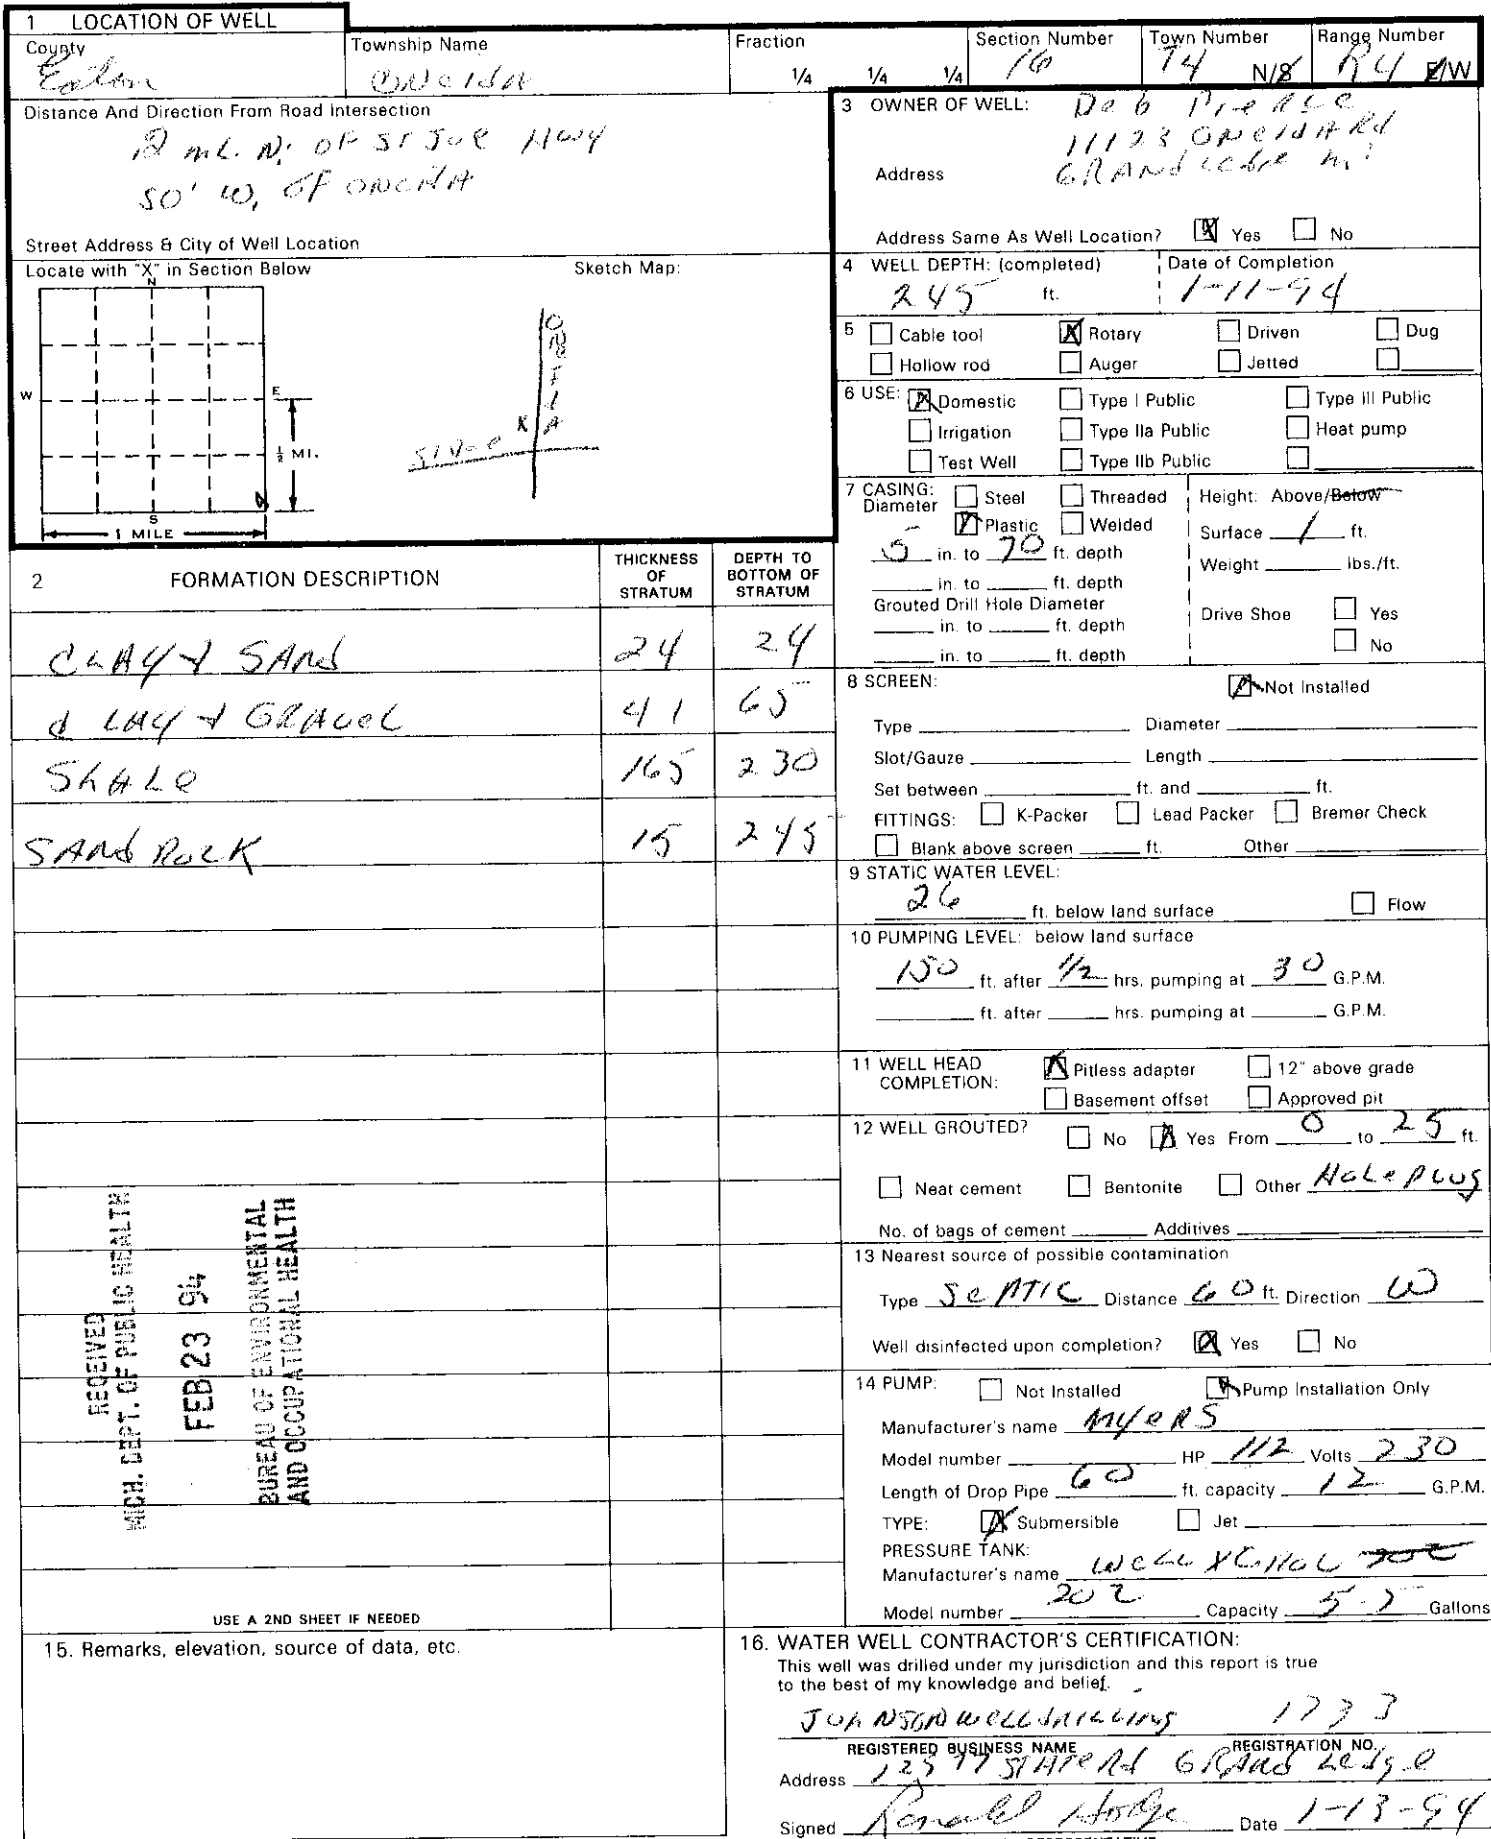 1 LOCATION OF WELL
County
Eaton
Township Name
ONEIDA
Fraction
1/4 1/4 1/4
Section Number
16
Town Number
T4 N/S
Range Number
R4 E/W
Distance And Direction From Road Intersection
mi. N. OF ST JOE HWY
50' W. OF ONEIDA
Street Address & City of Well Location
Locate with "X" in Section Below
Sketch Map:
N
W
E
S
1/2 MI.
1 MILE
ONEIDA
X
ST JOE
3 OWNER OF WELL: Deb Pierce
11123 ONEIDA Rd
Address GRAND Ledge Mi
Address Same As Well Location? X Yes No
4 WELL DEPTH: (completed)
245 ft.
Date of Completion
1-11-94
5 Cable tool X Rotary Driven Dug
Hollow rod Auger Jetted
6 USE: X Domestic Type I Public Type III Public
Irrigation Type IIa Public Heat pump
Test Well Type IIb Public
7 CASING: Steel Threaded
Diameter X Plastic Welded
5 in. to 70 ft. depth
in. to ft. depth
Grouted Drill Hole Diameter
in. to ft. depth
in. to ft. depth
Height: Above/Below
Surface 1 ft.
Weight lbs./ft.
Drive Shoe Yes
No
2 FORMATION DESCRIPTION
THICKNESS OF STRATUM
DEPTH TO BOTTOM OF STRATUM
CLAY & SAND 24 24
CLAY & GRAVEL 41 65
SHALE 165 230
SAND ROCK 15 245
8 SCREEN: X Not Installed
Type Diameter
Slot/Gauze Length
Set between ft. and ft.
FITTINGS: K-Packer Lead Packer Bremer Check
Blank above screen ft. Other
9 STATIC WATER LEVEL:
26 ft. below land surface Flow
10 PUMPING LEVEL: below land surface
150 ft. after 1/2 hrs. pumping at 30 G.P.M.
ft. after hrs. pumping at G.P.M.
11 WELL HEAD COMPLETION: X Pitless adapter 12" above grade
Basement offset Approved pit
12 WELL GROUTED? No X Yes From 0 to 25 ft.
Neat cement Bentonite Other Hole Plug
No. of bags of cement Additives
13 Nearest source of possible contamination
Type Septic Distance 60 ft. Direction W
Well disinfected upon completion? X Yes No
14 PUMP: Not Installed X Pump Installation Only
Manufacturer's name Myers
Model number HP 1/2 Volts 230
Length of Drop Pipe 60 ft. capacity 12 G.P.M.
TYPE: X Submersible Jet
PRESSURE TANK:
Manufacturer's name WELL XTROL
Model number 202 Capacity Gallons
RECEIVED
MICH. DEPT. OF PUBLIC HEALTH
FEB 23 94
BUREAU OF ENVIRONMENTAL
AND OCCUPATIONAL HEALTH
USE A 2ND SHEET IF NEEDED
15. Remarks, elevation, source of data, etc.
16. WATER WELL CONTRACTOR'S CERTIFICATION:
This well was drilled under my jurisdiction and this report is true
to the best of my knowledge and belief.
JOHNSON WELL DRILLING 1733
REGISTERED BUSINESS NAME REGISTRATION NO.
Address State Rd Grand Ledge
Signed Ronald Hodge Date 1-13-94